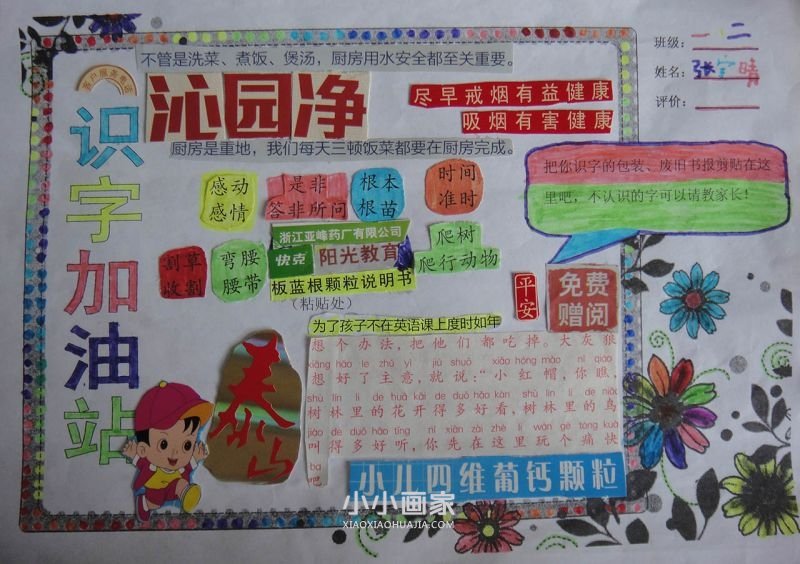 班级：一.二
姓名：张宇晴
评价：
不管是洗菜、煮饭、煲汤，厨房用水安全都至关重要。
客户服务专员
沁园净
尽早戒烟有益健康
吸烟有害健康
厨房是重地，我们每天三顿饭菜都要在厨房完成。
识字加油站
感动
感情
是非
答非所问
根本
根苗
时间
准时
把你识字的包装、废旧书报剪贴在这
里吧，不认识的字可以请教家长！
割草
收割
弯腰
腰带
浙江亚峰药厂有限公司
快克
阳光教育
爬树
爬行动物
板蓝根颗粒说明书
（粘贴处）
平安
免费
赠阅
为了孩子不在英语课上度时如年
想个办法，把他们都吃掉。大灰狼
xiǎng hǎo le zhǔ yì jiù shuō xiǎo hóng mào nǐ qiáo
想好了主意，就说：“小红帽，你瞧，
shù lín li de huā kāi de duō hǎo kàn shù lín li de niǎo
树林里的花开得多好看，树林里的鸟
jiào de duō hǎo tīng nǐ xiān zài zhè lǐ wán gè tòng kuài
叫得多好听，你先在这里玩个痛快
ba
吧
小儿四维葡钙颗粒
小小画家
XIAOXIAOHUAJIA.COM